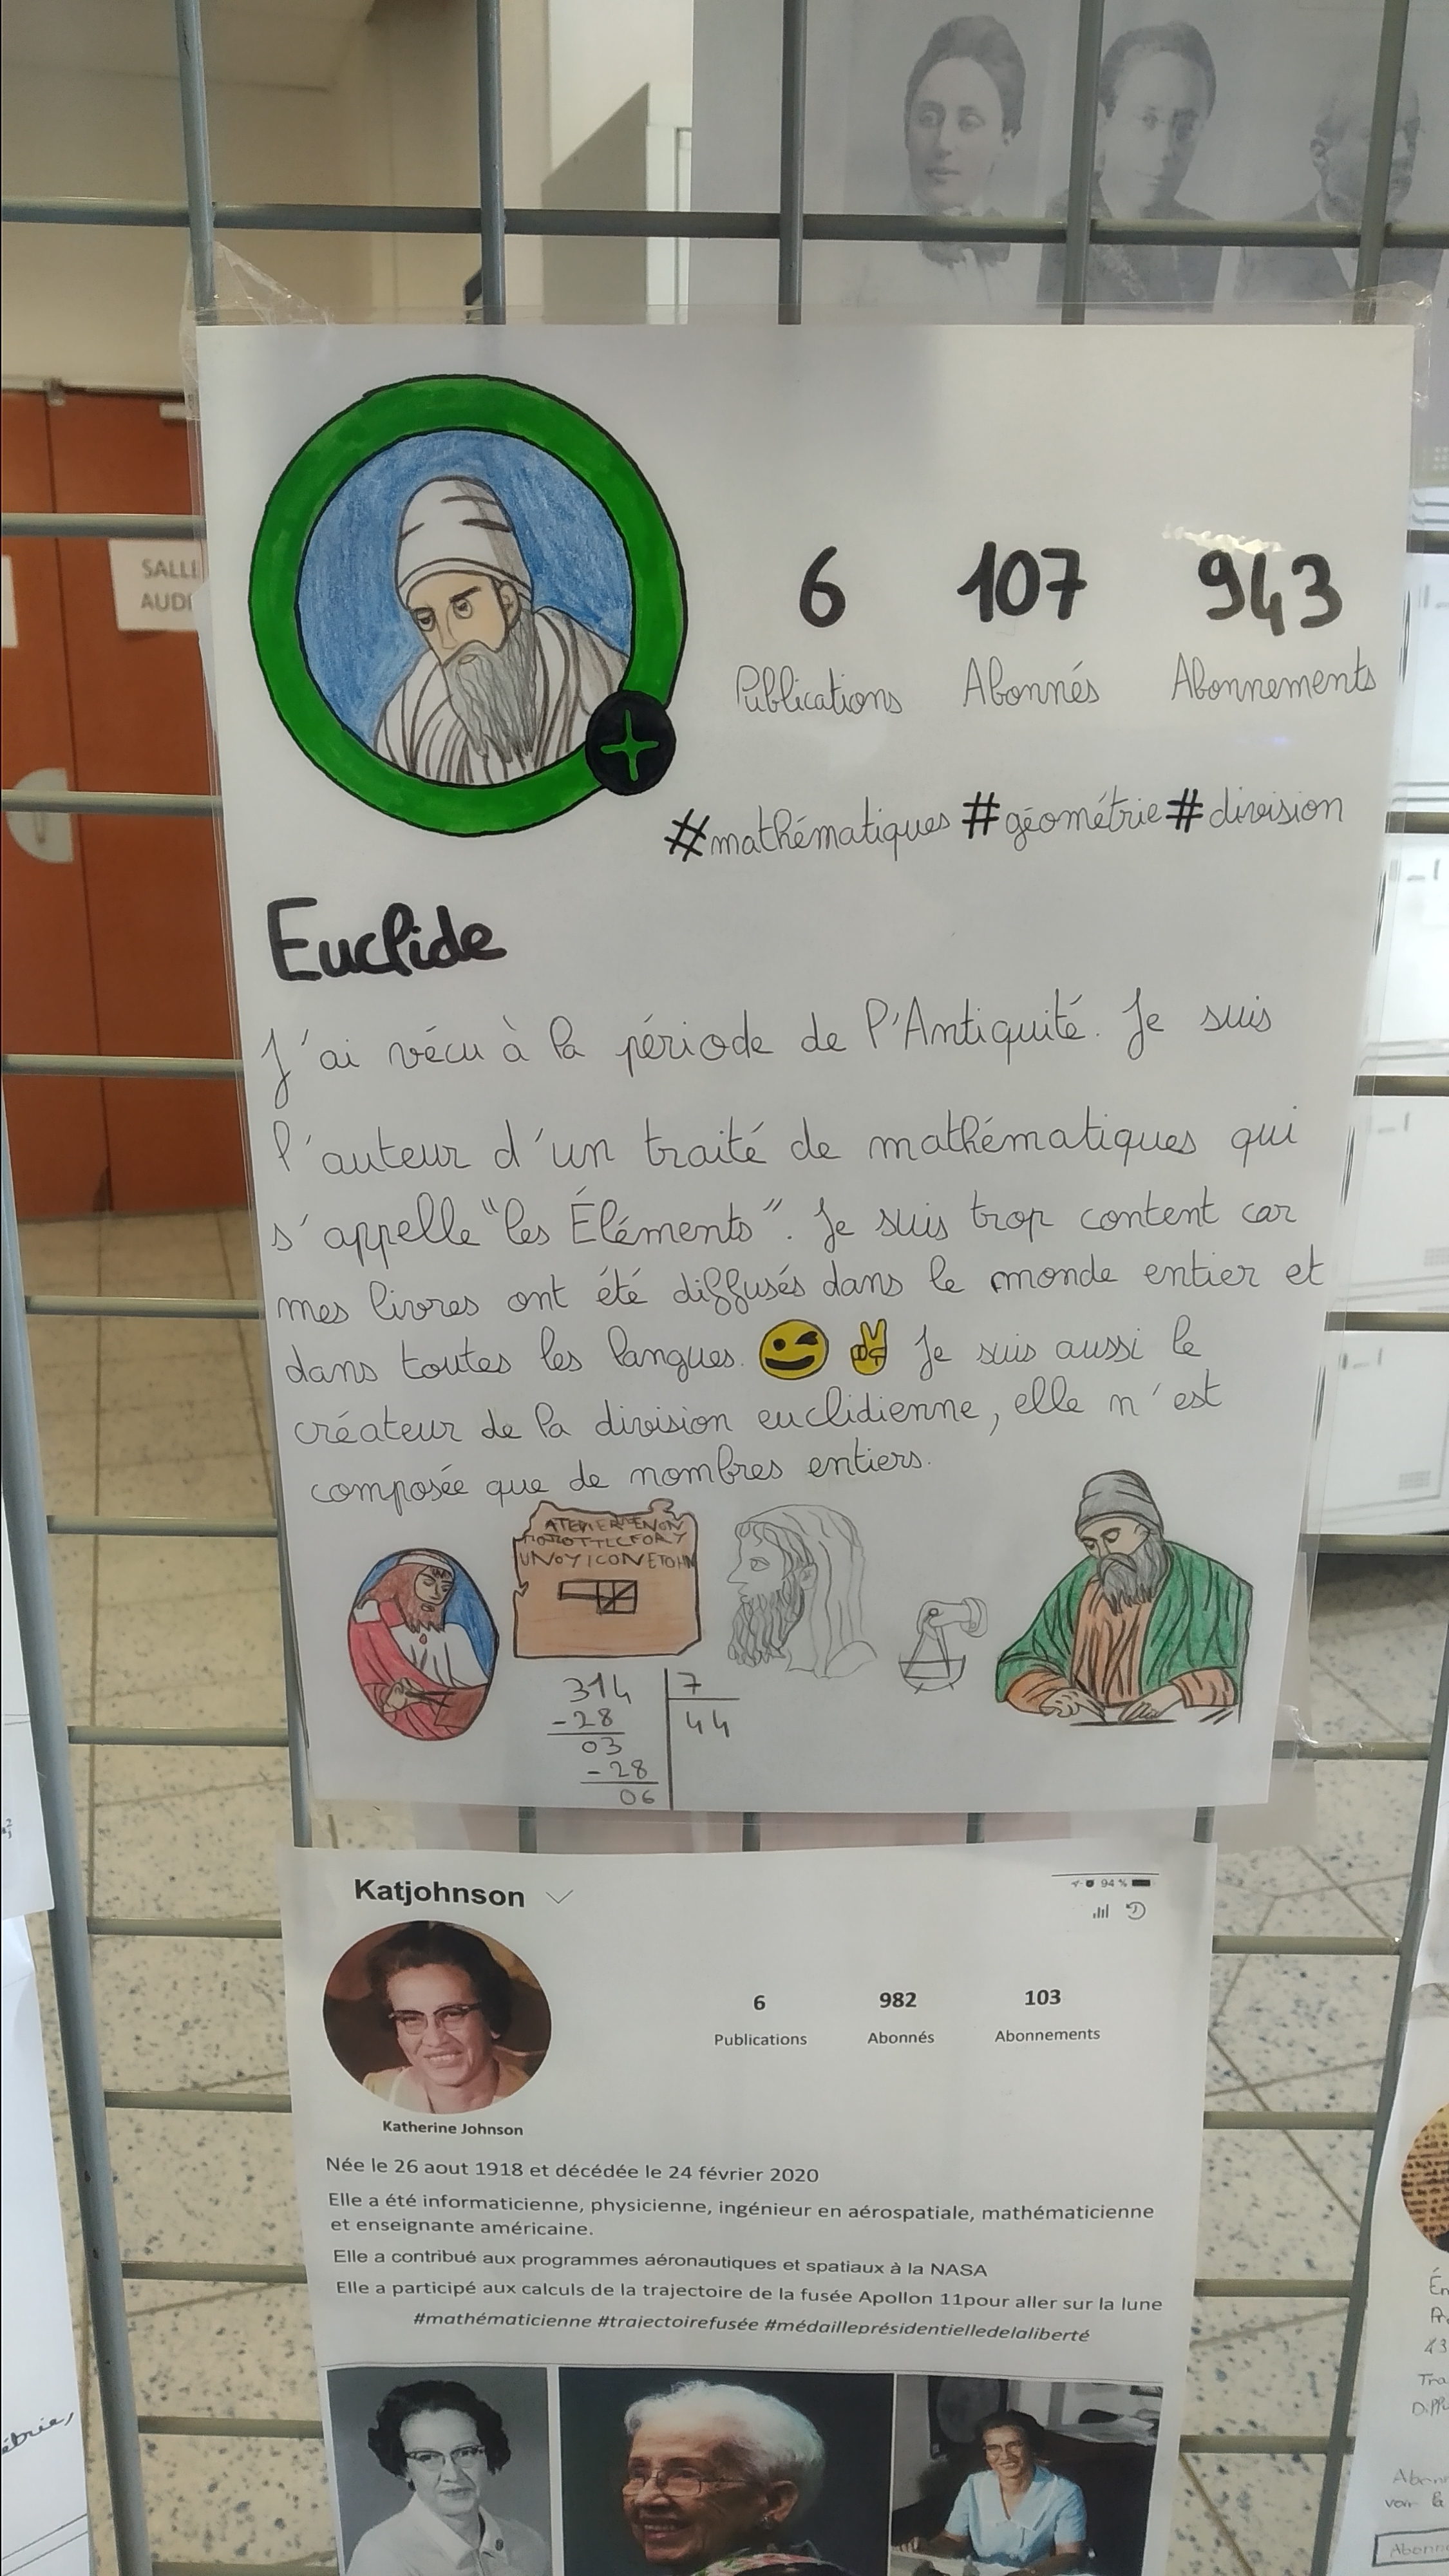 SALLE
AUDI
6 107 943
Publications Abonnés Abonnements
#mathématiques #géométrie #division
Euclide
J'ai vécu à la période de l'Antiquité. Je suis
l'auteur d'un traité de mathématiques qui
s'appelle "les Éléments". Je suis trop content car
mes livres ont été diffusés dans le monde entier et
dans toutes les langues. 😉 ✌ Je suis aussi le
créateur de la division euclidienne, elle n'est
composée que de nombres entiers.
314 7
-28 44
03
-28
06
Katjohnson
94 %
6 982 103
Publications Abonnés Abonnements
Katherine Johnson
Née le 26 aout 1918 et décédée le 24 février 2020
Elle a été informaticienne, physicienne, ingénieur en aérospatiale, mathématicienne
et enseignante américaine.
Elle a contribué aux programmes aéronautiques et spatiaux à la NASA
Elle a participé aux calculs de la trajectoire de la fusée Apollon 11pour aller sur la lune
#mathématicienne #trajectoirefusée #médailleprésidentielledelaliberté